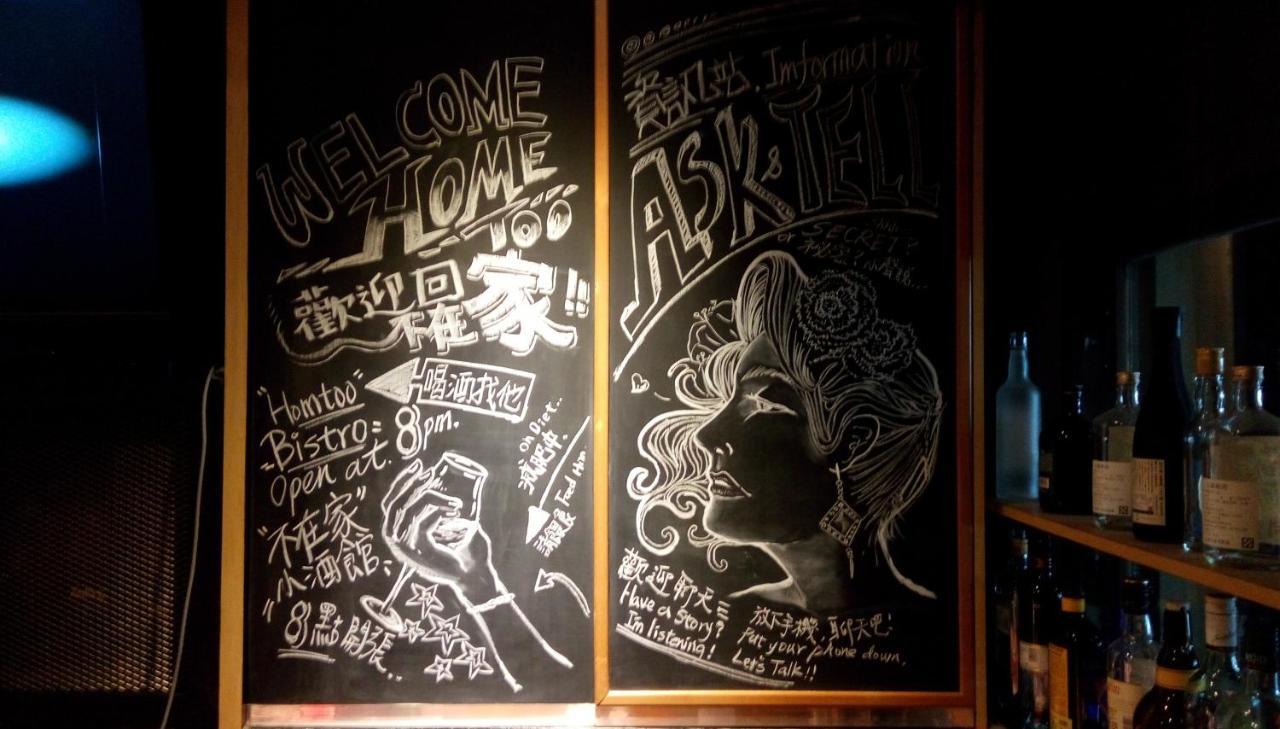 WELCOME
HOME
TOO
歡迎回家!!
不在
喝酒找他
"Homtoo"
Bistro
Open at 8pm.
"不在家"
小酒館
8點開張...
on Diet..
減肥中.
請餵食 Feed Him
資訊站.Imformation
ASK & TELL
or SECRET?
秘密?小聲說...
歡迎聊天
Have a story?
I'm listening!
放下手機,聊天吧!
Put your phone down.
Let's Talk!!